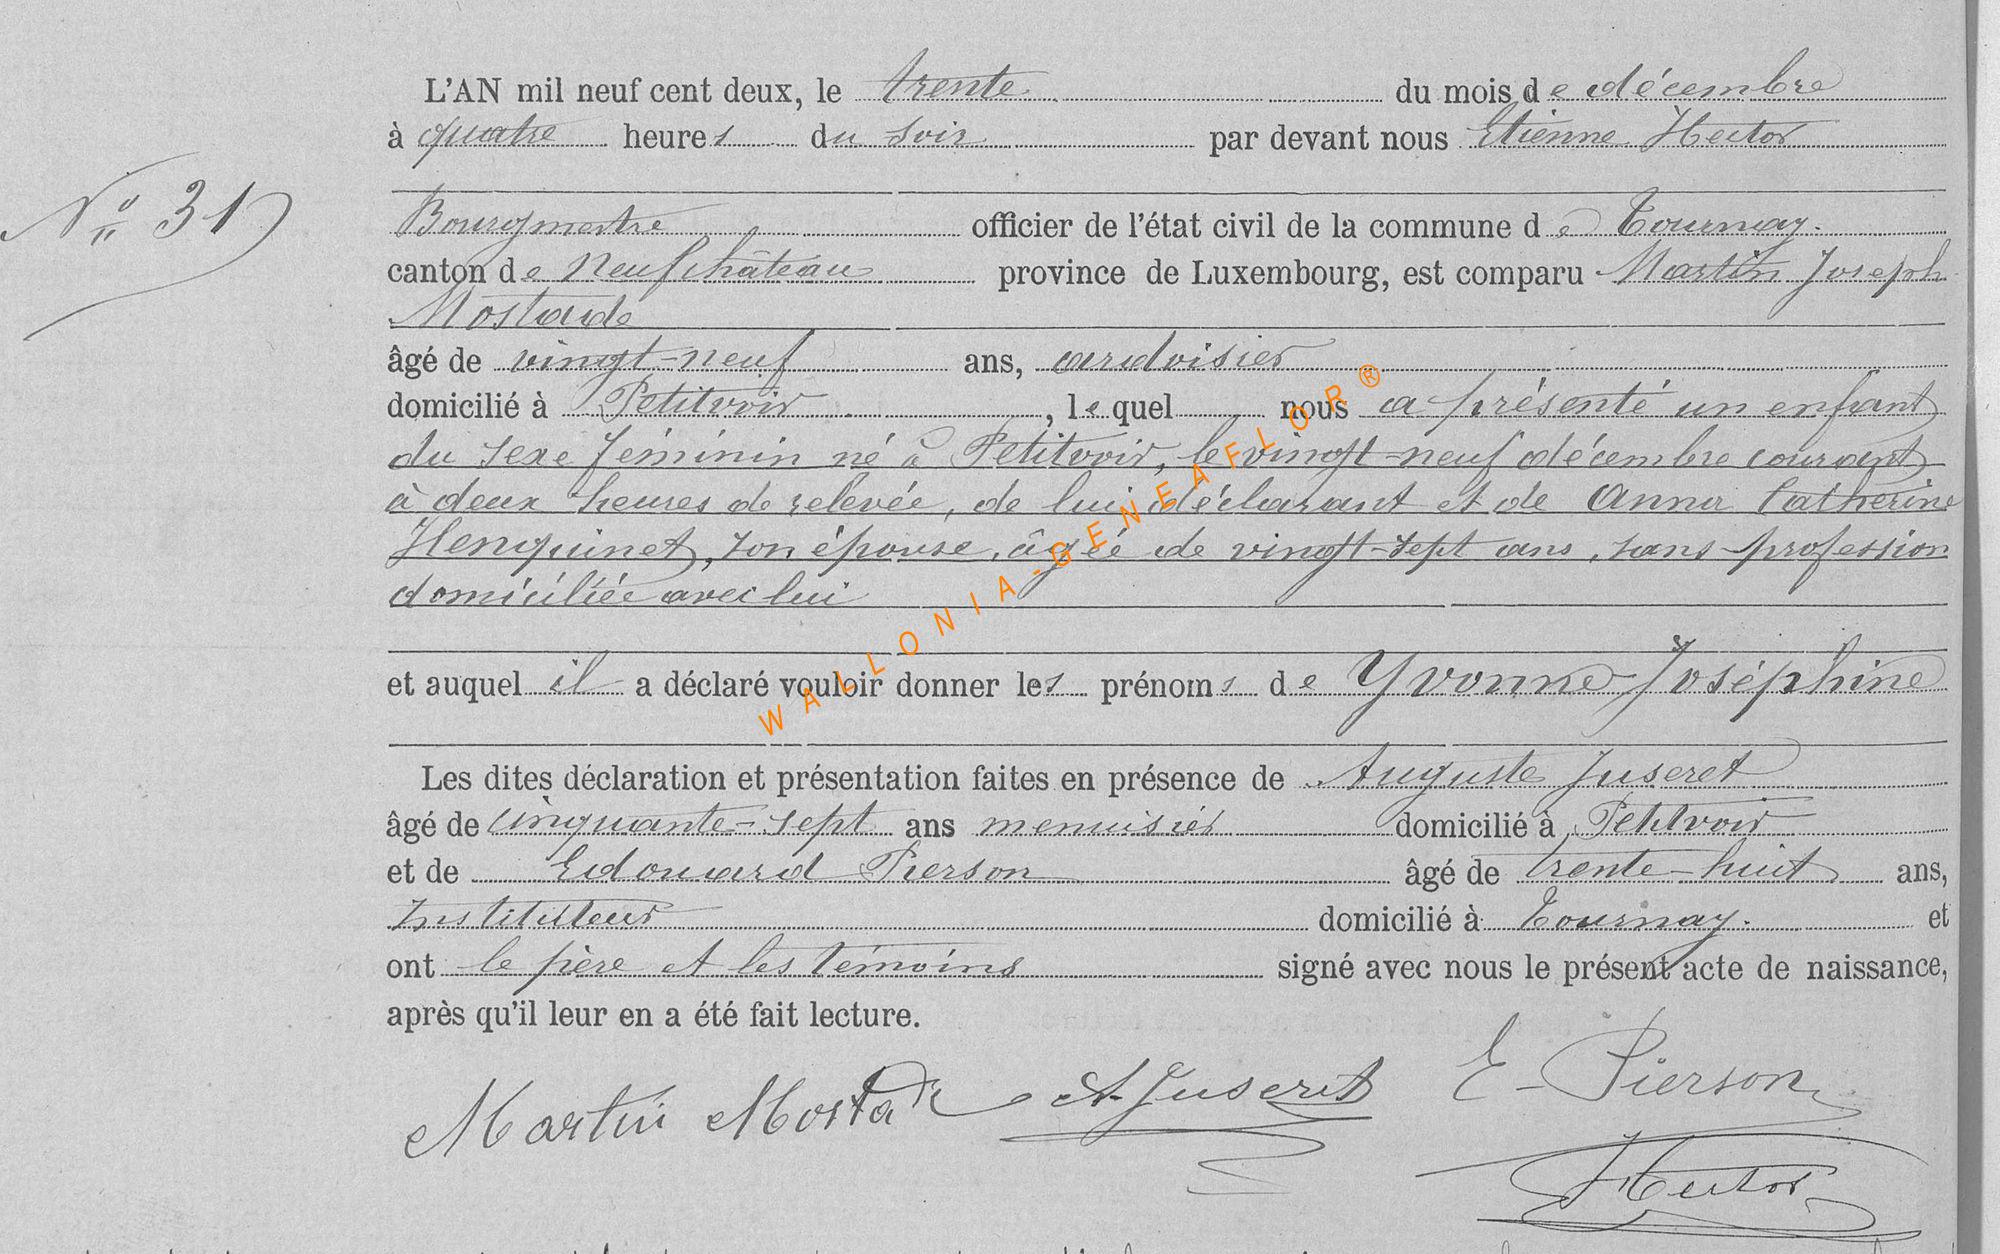 L'AN mil neuf cent deux, le trente du mois de décembre
à quatre heures du soir par devant nous Etienne Hector
N° 31
Bourgmestre officier de l'état civil de la commune de Tournay.
canton de Neufchâteau province de Luxembourg, est comparu Martin Joseph
Mostade
âgé de vingt-neuf ans, ardoisier
domicilié à Petitvoir, lequel nous a présenté un enfant
du sexe féminin né à Petitvoir, le vingt-neuf décembre courant
à deux heures de relevée, de lui déclarant et de Anna Catherine
Henquinet, son épouse, âgée de vingt-sept ans, sans profession
domiciliée avec lui
et auquel il a déclaré vouloir donner les prénoms de Yvonne Joséphine
Les dites déclaration et présentation faites en présence de Auguste Juseret
âgé de cinquante-sept ans menuisier domicilié à Petitvoir
et de Edouard Pierson âgé de trente-huit ans,
Instituteur domicilié à Tournay. et
ont le père et les témoins signé avec nous le présent acte de naissance,
après qu'il leur en a été fait lecture.
Martin Mostade A. Juseret E. Pierson
Hector
WALLONIA-GENEAFLOR®